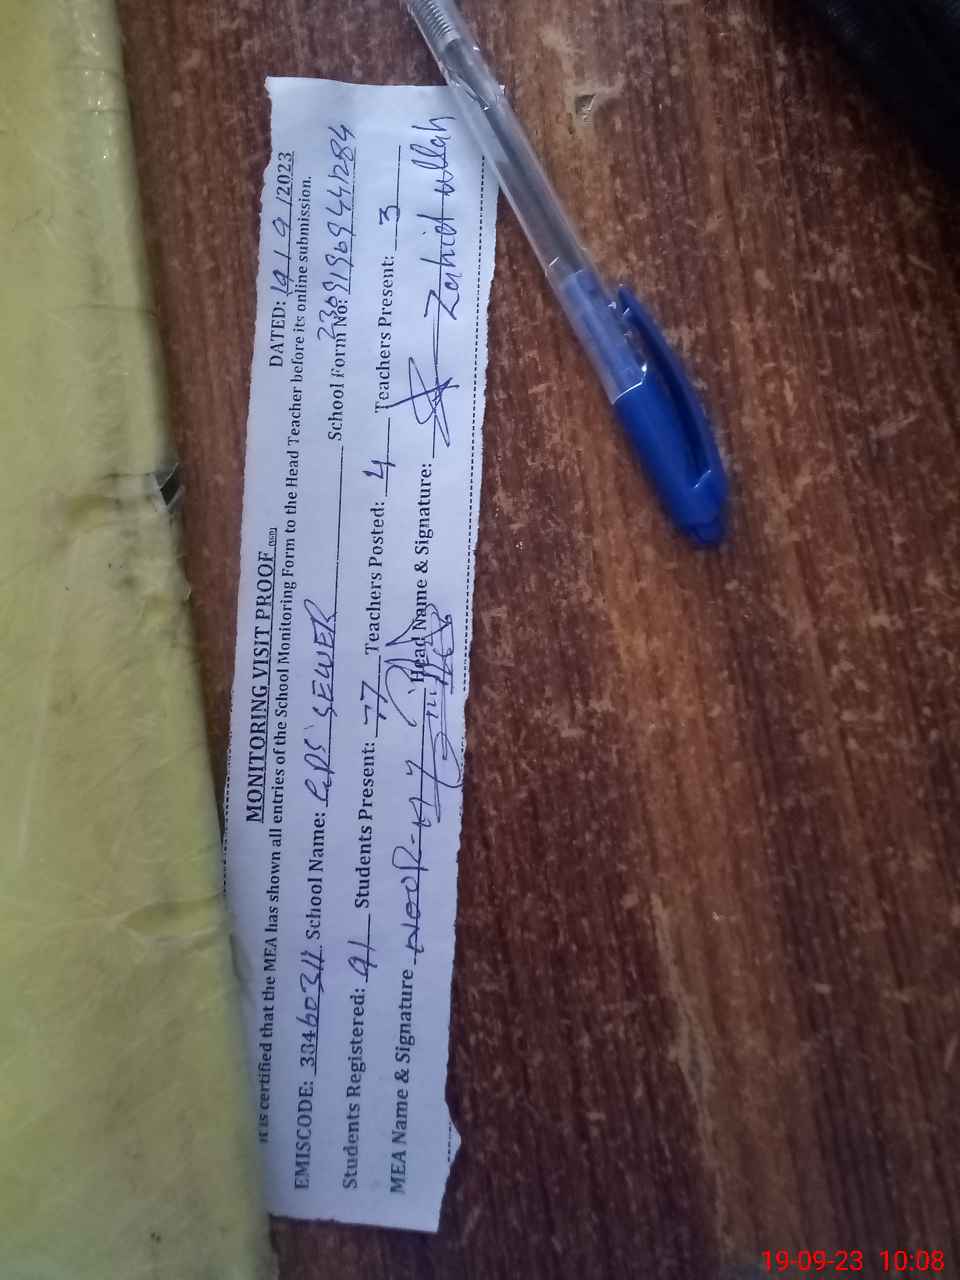 MONITORING VISIT PROOF DATED: 19/9/2023
It is certified that the MEA has shown all entries of the School Monitoring Form to the Head Teacher before its online submission.
EMISCODE: 33460311 School Name: GPS SEWER School Form No:
Students Registered: 91 Students Present: 77 Teachers Posted: 4 Teachers Present: 3
MEA Name & Signature NOOR Head Name & Signature: Zahid ullah
19-09-23 10:08